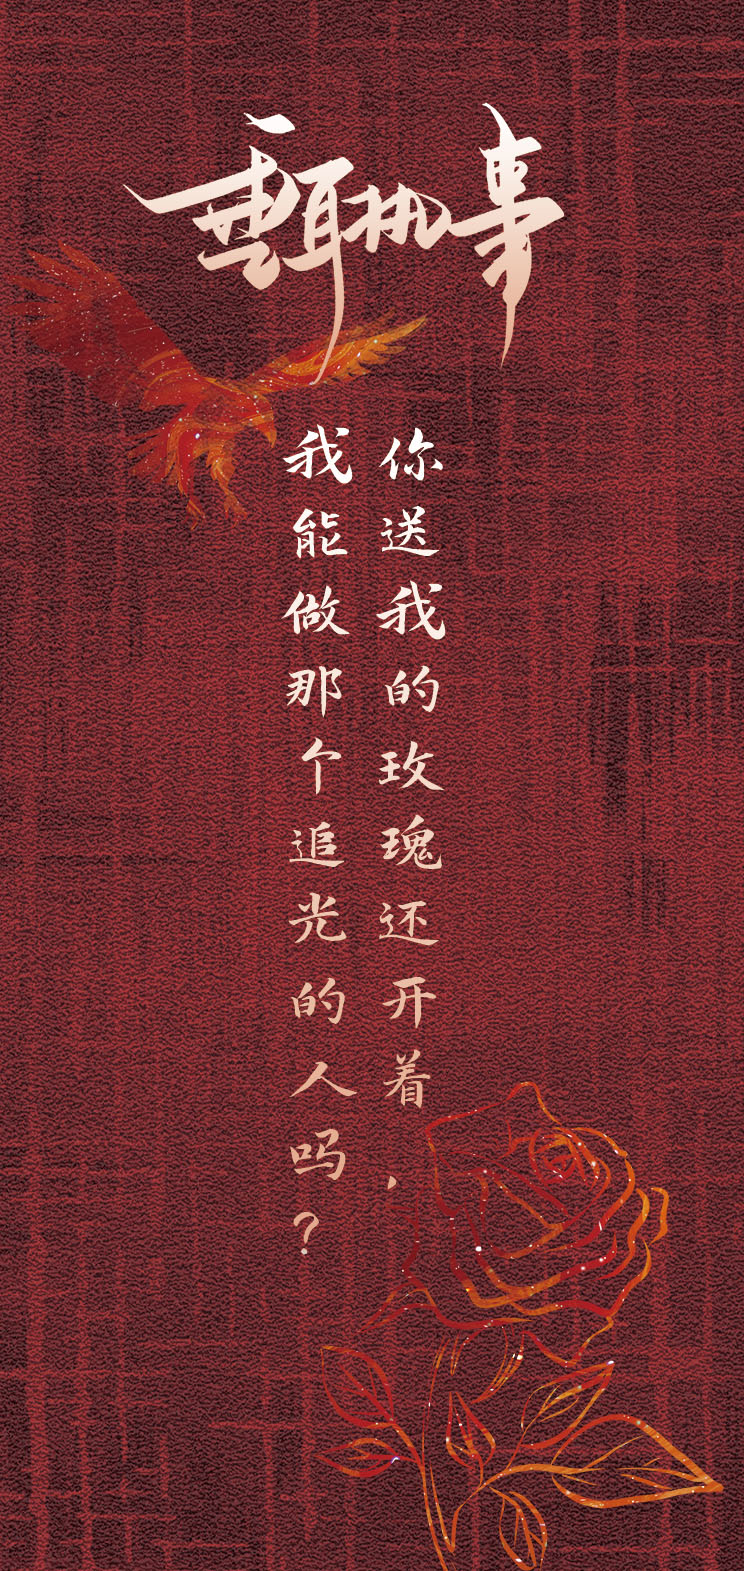 垂耳执事
你送我的玫瑰还开着，
我能做那个追光的人吗？